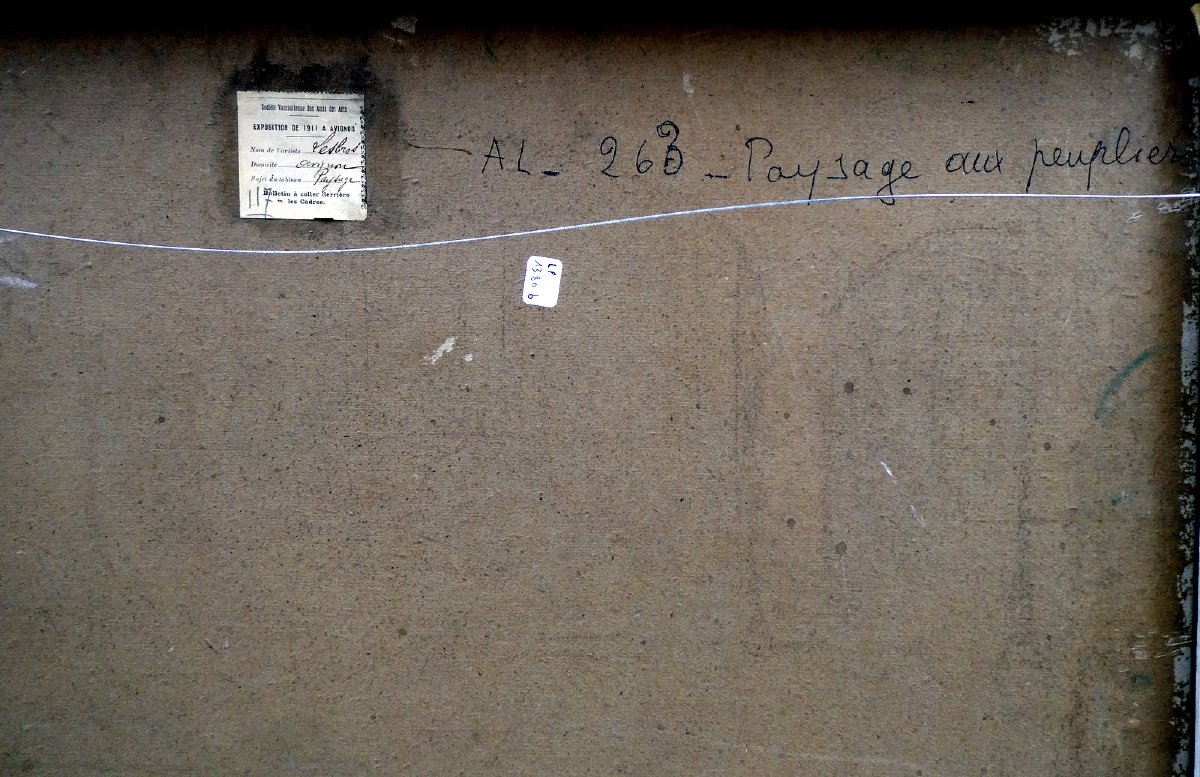 Société Vauclusienne des Amis des Arts
EXPOSITION DE 1911 A AVIGNON
Nom de l'artiste Lesbros
Domicile avignon
Sujet du tableau Paysage
Bulletin à coller derrière
les Cadres.
117
AL_ 263 _ Paysage aux peupliers
LP
1380 b